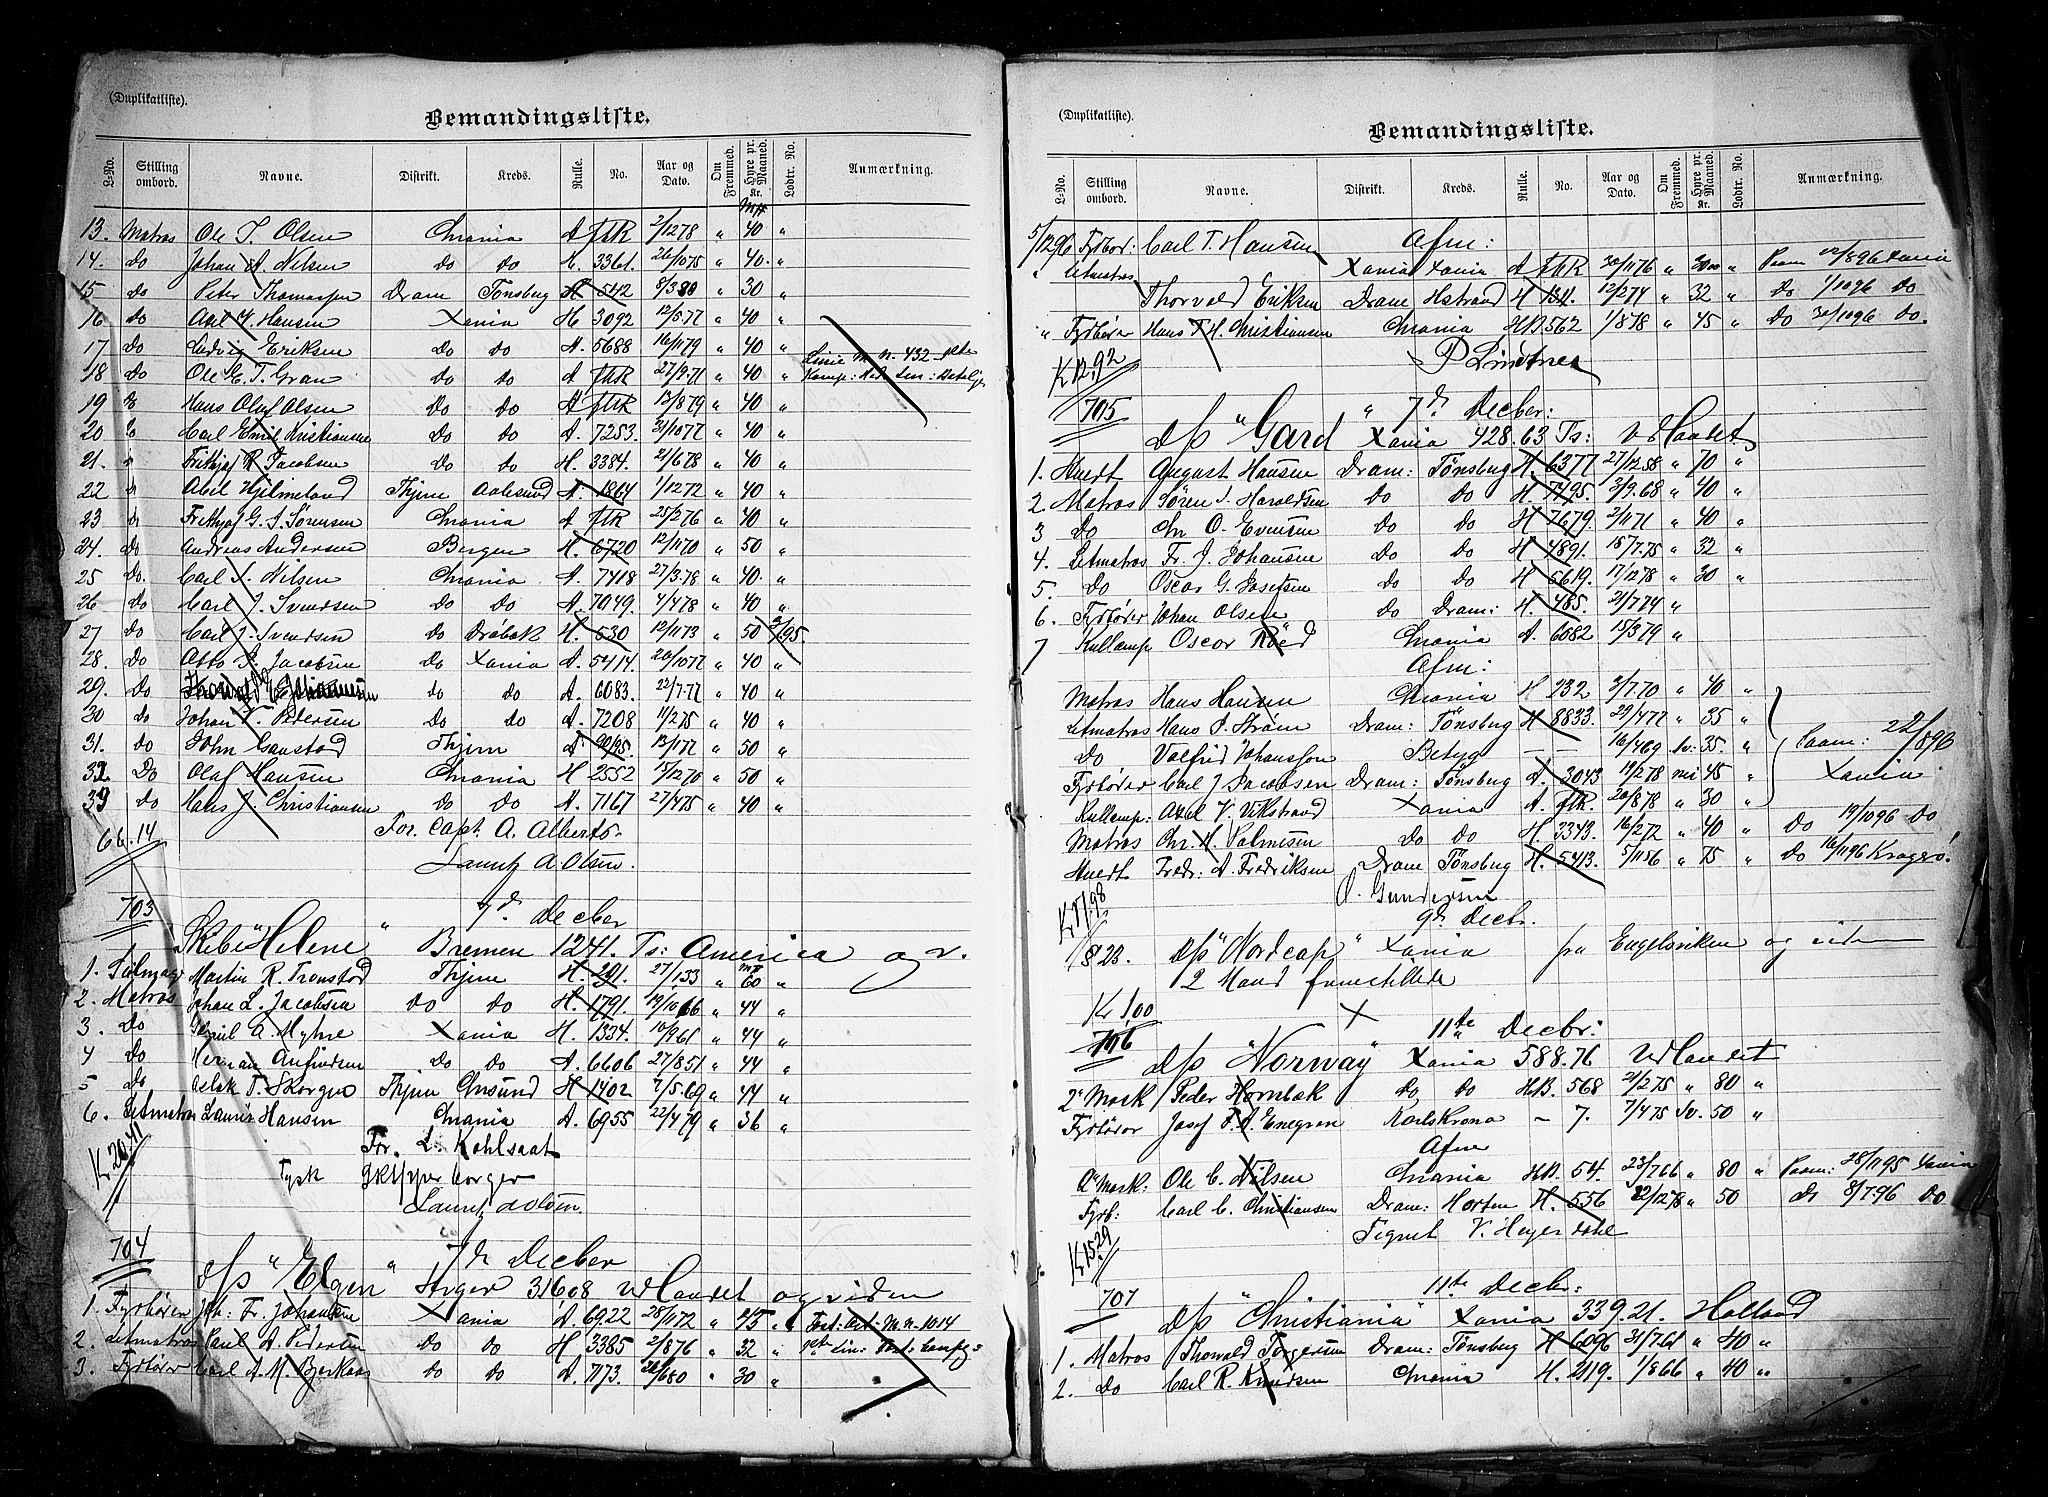 (Duplikatliste).
Bemandingsliste.
L-No. Stilling ombord. Navne. Distrikt. Kreds. Rulle. No. Aar og Dato. Om Fremmed. Hyre pr. Maaned. Kr. Lodtr. No. Anmærkning.
13. Matros Ole T. Olsen Chrania A ftR 2/12 78 " 40 "
14. do Johan A Nilsen do do H. 3361. 26/10 75 " 40 "
15 do Peter Thomassen Dram Tönsbug H 542 8/3 80 " 30 "
16 do Axel Hansen Xania H 3092 12/5.77 " 40 "
17 do Ludvig Eriksen do do A. 5688 16/11 79 " 40 "
18 do Ole E. T. Gran do do A ftR 27/9.71 " 40 "
19 do Hans Oluf Olsen do do A ftR 13/8 79 " 40 "
20 do Carl Emil Kristiansen do do A. 7253. 31/10 77 " 40 "
21. " Frithjof R. Jacobsen do do H. 3384. 21/6 78 " 40 "
22 " Abel Hjelmeland Thjem Aalesund A. 1864 1/12 72 " 40 "
23 do Frithjof G. S. Sörensen Chrania A ftR 25/2 76 " 40 "
24. do Andreas Andersen Bergen H. 6720 12/11 70 " 50 "
25 do. Carl S. Nilsen Chrania A. 7418 27/3.78 " 40 "
26 do Carl J. Svendsen do do A. 7049. 4/4 78 " 40 "
27 do Carl J. Svendsen do Dröbak H. 530 12/11 73 " 50 2/95
28. do Otto P. Jacobsen do Xania A. 5414. 20/10 77 " 40 "
29. do do do A. 6083. 22/7.77 " 40 "
30 do Johan T. Pedersen do do A. 7208 11/2 75 " 40 "
31. do John Gaustad Thjem A 9095. 13/1 77 " 50 "
32 Do Olaf Hansen Chrania H 2552 15/12 70 " 50 "
33 do Hans J. Christiansen do do A. 7167 27/4 75 " 40 "
66.14 For. Capt. A. Alberts
Lauritz A. Olsen.
703 7d Decber
Skib "Helene" Bremen 1241. Ts: America og v.
1. Martin R. Tronstad Thjem H 291. 27/1.33 " 60 "
2. Matros Johan L. Jacobsen do do H. 1791. 19/10 66 " 44 "
3. do Emil A. Myhre Xania H. 1334. 10/9 61 " 44 "
4 do Herman Anfindsen do do A. 6606 27/8 51 " 44 "
5 do Aslak T. Skorgen Thjem Chrsund H 1402 7/5.69 " 44 "
6. Letmatros Lauritz Hansen Chrania A. 6955 22/4 79 " 36 "
Kr 20.41
For. L. Kohlsaat
Tysk Skipper borger
Lauritz A Olsen.
704 7d Decber
d/s "Elgen" Arger 316 08 v Havet og viden
1. Fyrböter Joh: Fr. Johansen Xania A. 6922 28/11 72 " 45 "
2. Letmatros Paul A. Pedersen do do H 3385 2/8 76 " 32 "
3. Fyrböter Carl A. M. Bjerkaas do do A. 7173. 20/6 80 " 30 "
(Duplikatliste).
Bemandingsliste.
L-No. Stilling ombord. Navne. Distrikt. Kreds. Rulle. No. Aar og Dato. Om Fremmed. Hyre pr. Maaned. Kr. Lodtr. No. Anmærkning.
5/12 96 Fyrböt: Carl T. Hansen Afm:
" Letmatros Xania Xania A ftR 30/11 76 " 30 " Paam 22/8 96 Xania
Thorvald Eriksen Dram Hstrand H 1311. 12/2 74 " 32 " do 1/10 96 do
" Fyrböter Hans H. Christiansen Chrania HB. 562 1/8 78 " 45 " do 30/10 96 do.
Kr 12.92 P Lindtner
705 " 7d Decber:
d/s "Gard Xania 428.63 Ts: v Havet
1. Huedt August Hansen Dram: Tönsbug H. 6377 27/12 58 " 70 "
2 Matros Sören I. Haroldsen do do H. 7495. 3/9.68 " 40 "
3 do Chr O. Evensen do do H 7679. 2/11 71 " 40 "
4. Letmatros Fr. J. Johansen do do H 4891. 15/7.75 " 32 "
5. do Oscar G. Josefsen do do H 5619. 17/12 78 " 30 "
6. Fyrböter Johan Olsen do Dram: H. 485. 21/7 74 "
7 Kullemp Oscar Röed Chrania A. 6082 15/3 79 "
Afm:
Matros Hans Hansen Chrania H 232 2/7.70 " 40 "
Letmatros Hans P. Ström Dram: Tönsbug H 8833. 29/4 77 " 35 "
do Valfrid Johansson Betyg — — 16/4 69 Sv. 35. " Paam: 22/8 96
Fyrböter Carl J Jacobsen Dram: Tönsbug A. 3043 19/2 78 45 " Xania
Kullemp: Axel V. Vikstrand Xania A. ftR. 20/8 78 " 30 "
Matros Chr. H. Salmesen do do H. 3343. 16/2 72 " 40 " do 19/10 96 do
Huedt Fredr. A. Fredriksen Dram Tönsbug H. 5413. 5/11 56 " 75 " do 16/11 96 Kragerö.
Kr 17.98 O. Gundersen
9d Decbr.
823. d/s "Nordcap" Xania fra Engelsviken og viden
2 Mand fremstillede
Kr 1.00
706 11te Decbr:
d/s "Norway" Xania 588.76 v Havet
2' Mask Peder Hornbæk do do HB. 568 21/2 75 " 80 "
Fyrböter Josef F. A. Enegren Karlskrona — 7. 7/4 75 Sv. 50 "
Afm
2' Mask: Ole C. Nilsen Chrania HB. 54. 23/7 66 " 80 " Paam: 28/11 95 Xania
Fyrb: Carl C. Christiansen Dram: Horten H. 556 22/12 78 " 50 " do 8/7 96 do
Kr 15.29 Tegnet V. Heyerdahl
11te Decbr:
707 d/s "Christiania" Xania 339.21. Holland
1. Matros Thorvald Torgersen Dram: Tönsbug H 6096 31/7.61 " 40 "
2. do Carl R. Knudsen Chrania H. 2119. 1/8 66 " 40 "